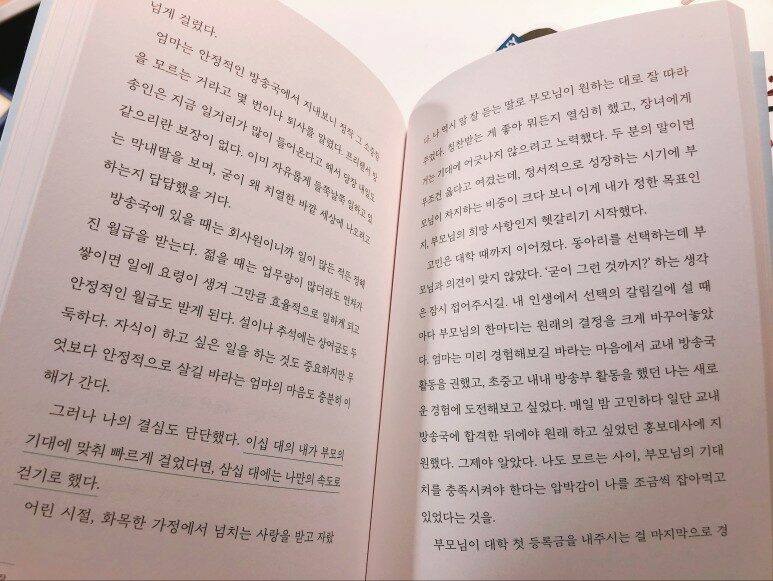 넘게 걸렸다.
엄마는 안정적인 방송국에서 지내보니 정작 그 소중함
을 모르는 거라고 몇 번이나 퇴사를 말렸다. 프리랜서 방
송인은 지금 일거리가 많이 들어온다고 해서 당장 내일도
같으리란 보장이 없다. 이미 자유롭게 들쭉날쭉 일하고 있
는 막내딸을 보며, 굳이 왜 치열한 바깥 세상에 나오려고
하는지 답답했을 거다.
방송국에 있을 때는 회사원이니까 일이 많든 적든 정해
진 월급을 받는다. 젊을 때는 업무량이 많더라도 연차가
쌓이면 일에 요령이 생겨 그만큼 효율적으로 일하게 되고
안정적인 월급도 받게 된다. 설이나 추석에는 상여금도 두
둑하다. 자식이 하고 싶은 일을 하는 것도 중요하지만 무
엇보다 안정적으로 살길 바라는 엄마의 마음도 충분히 이
해가 간다.
그러나 나의 결심도 단단했다. 이십 대의 내가 부모의
기대에 맞춰 빠르게 걸었다면, 삼십 대에는 나만의 속도로
걷기로 했다.
어린 시절, 화목한 가정에서 넘치는 사랑을 받고 자랐
다. 나 역시 말 잘 듣는 딸로 부모님이 원하는 대로 잘 따라
주었다. 칭찬받는 게 좋아 뭐든지 열심히 했고, 장녀에게
거는 기대에 어긋나지 않으려고 노력했다. 두 분의 말이면
무조건 옳다고 여겼는데, 정서적으로 성장하는 시기에 부
모님이 차지하는 비중이 크다 보니 이게 내가 정한 목표인
지, 부모님의 희망 사항인지 헷갈리기 시작했다.
고민은 대학 때까지 이어졌다. 동아리를 선택하는데 부
모님과 의견이 맞지 않았다. ‘굳이 그런 것까지?’ 하는 생각
은 잠시 접어주시길. 내 인생에서 선택의 갈림길에 설 때
마다 부모님의 한마디는 원래의 결정을 크게 바꾸어놓았
다. 엄마는 미리 경험해보길 바라는 마음에서 교내 방송국
활동을 권했고, 초중고 내내 방송부 활동을 했던 나는 새로
운 경험에 도전해보고 싶었다. 매일 밤 고민하다 일단 교내
방송국에 합격한 뒤에야 원래 하고 싶었던 홍보대사에 지
원했다. 그제야 알았다. 나도 모르는 사이, 부모님의 기대
치를 충족시켜야 한다는 압박감이 나를 조금씩 잡아먹고
있었다는 것을.
부모님이 대학 첫 등록금을 내주시는 걸 마지막으로 경